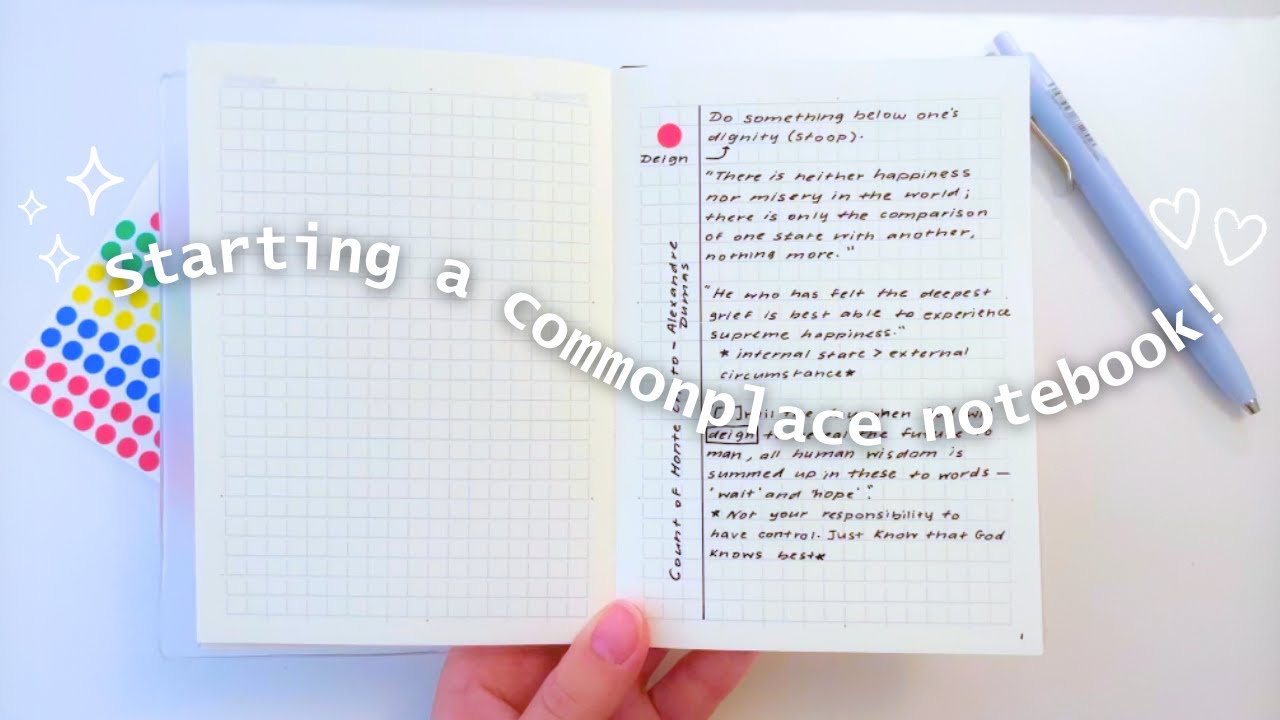 Starting a commonplace notebook!
Deign
Count of Monte - Alexandre
Dumas
Do something below one's
dignity (stoop).
"There is neither happiness
nor misery in the world;
there is only the comparison
of one state with another,
nothing more."
"He who has felt the deepest
grief is best able to experience
supreme happiness."
* internal state > external
circumstance*
deign the
man, all human wisdom is
summed up in these to words —
'wait' and 'hope'."
* Not your responsibility to
have control. Just know that God
knows best*
1